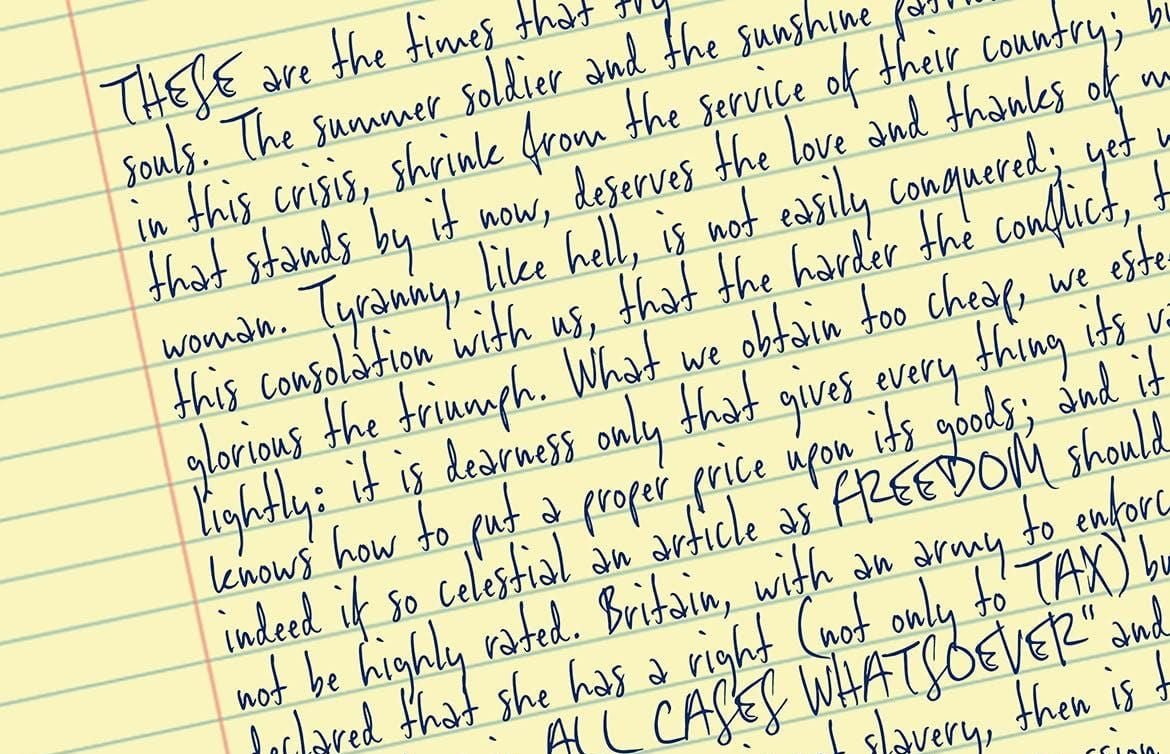 THESE are the times that try
souls. The summer soldier and the sunshine
in this crisis, shrink from the service of their country;
that stands by it now, deserves the love and thanks of
woman. Tyranny, like hell, is not easily conquered; yet
this consolation with us, that the harder the conflict,
glorious the triumph. What we obtain too cheap, we
lightly: it is dearness only that gives every thing its
knows how to put a proper price upon its goods; and it
indeed if so celestial an article as FREEDOM should
not be highly rated. Britain, with an army to
declared that she has a right (not only to TAX)
ALL CASES WHATSOEVER" and
slavery, then is